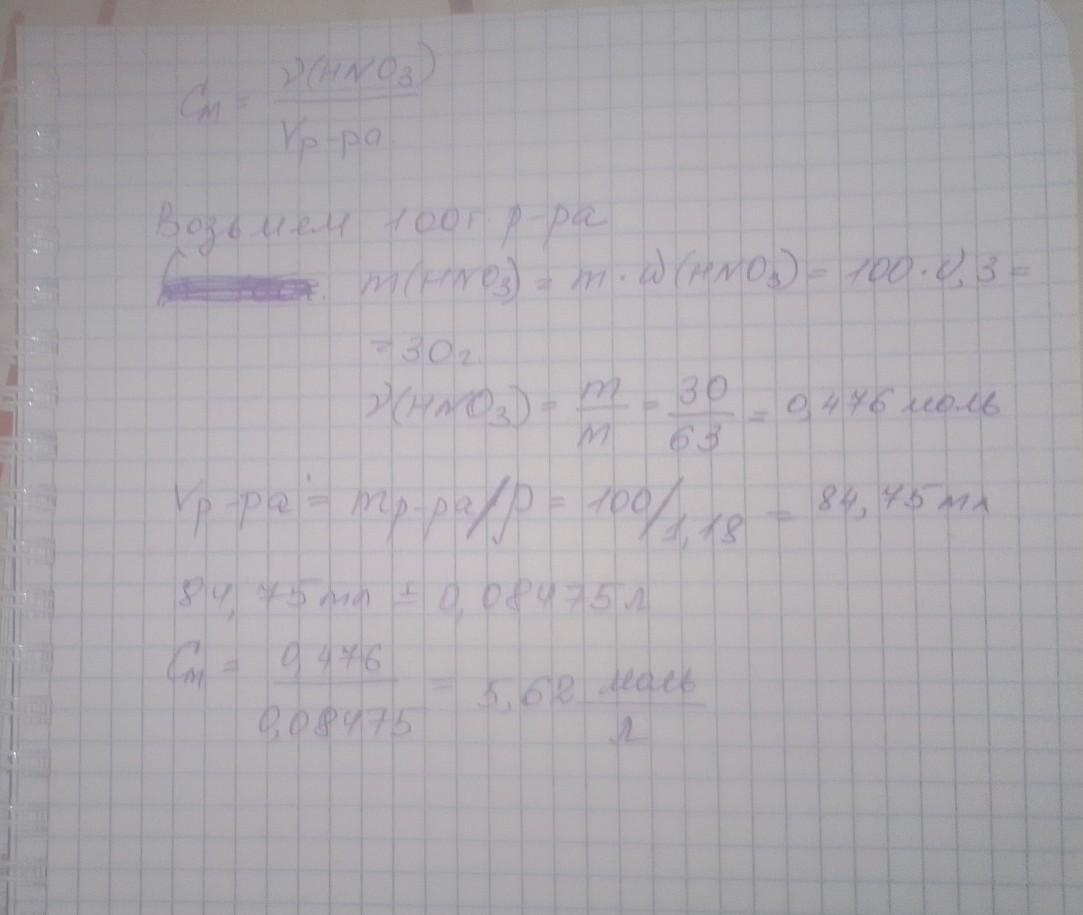 Cм = ν(HNO3) / Vр-ра
Возьмем 100г. р-ра
m(HNO3) = m · ω(HNO3) = 100 · 0,3 =
= 30г
ν(HNO3) = m/m = 30/63 = 0,476 моль
Vр-ра = mр-ра/ρ = 100/1,18 = 84,75 мл
84,75 мл = 0,08475 л
Cм = 0,476 / 0,08475 = 5,62 моль/л